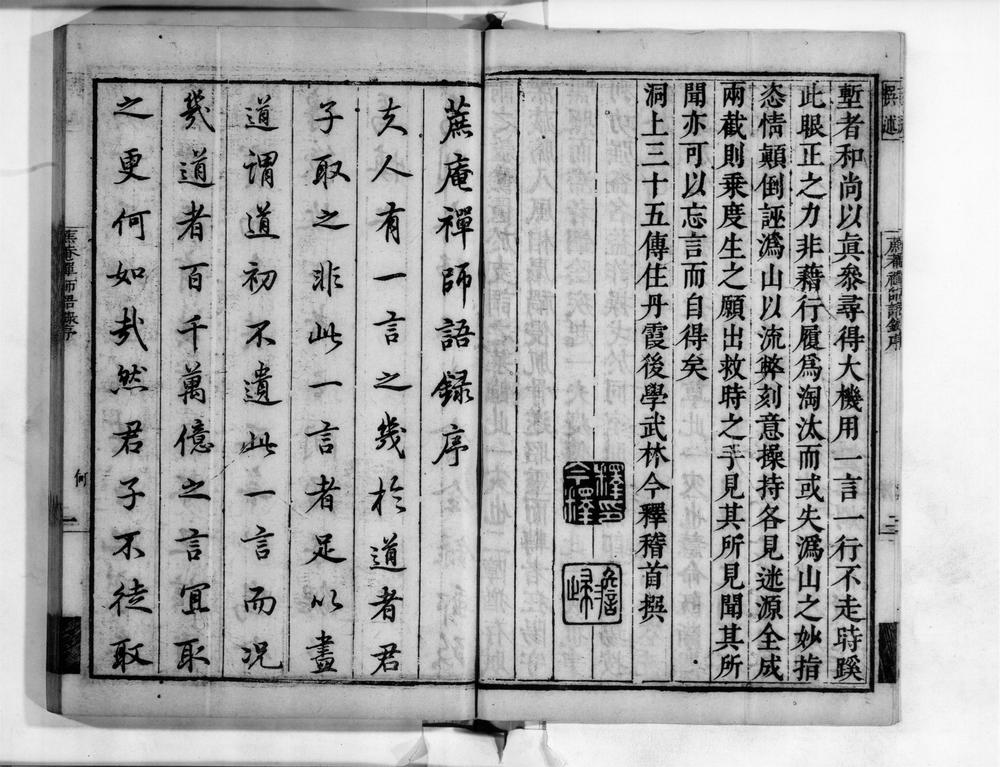 塹者和尚以真參尋得大機用一言一行不走時蹊
此眼正之力非藉行履為淘汰而或失溈山之妙指
恣情顛倒誣溈山以流弊刻意操持各見迷源全成
兩截則乗度生之願出救時之手見其所見聞其所
聞亦可以忘言而自得矣
洞上三十五傳住丹霞後學武林今釋稽首撰
蔗庵禪師語錄序
夫人有一言之幾於道者君
子取之非此一言者足以盡
道謂道初不遺此一言而況
幾道者百千萬億之言宜取
之更何如哉然君子不徒取
蔗菴禪師語錄序
何
一
撰述
蔗菴禪師語錄序
二